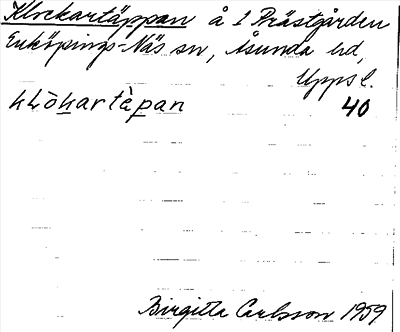 Klockartäppan å 1 Prästgården
Enköpings-Näs sn, Åsunda hd,
Upps l.
kLòkartὲpan 40
Birgitta Carlsson 1959